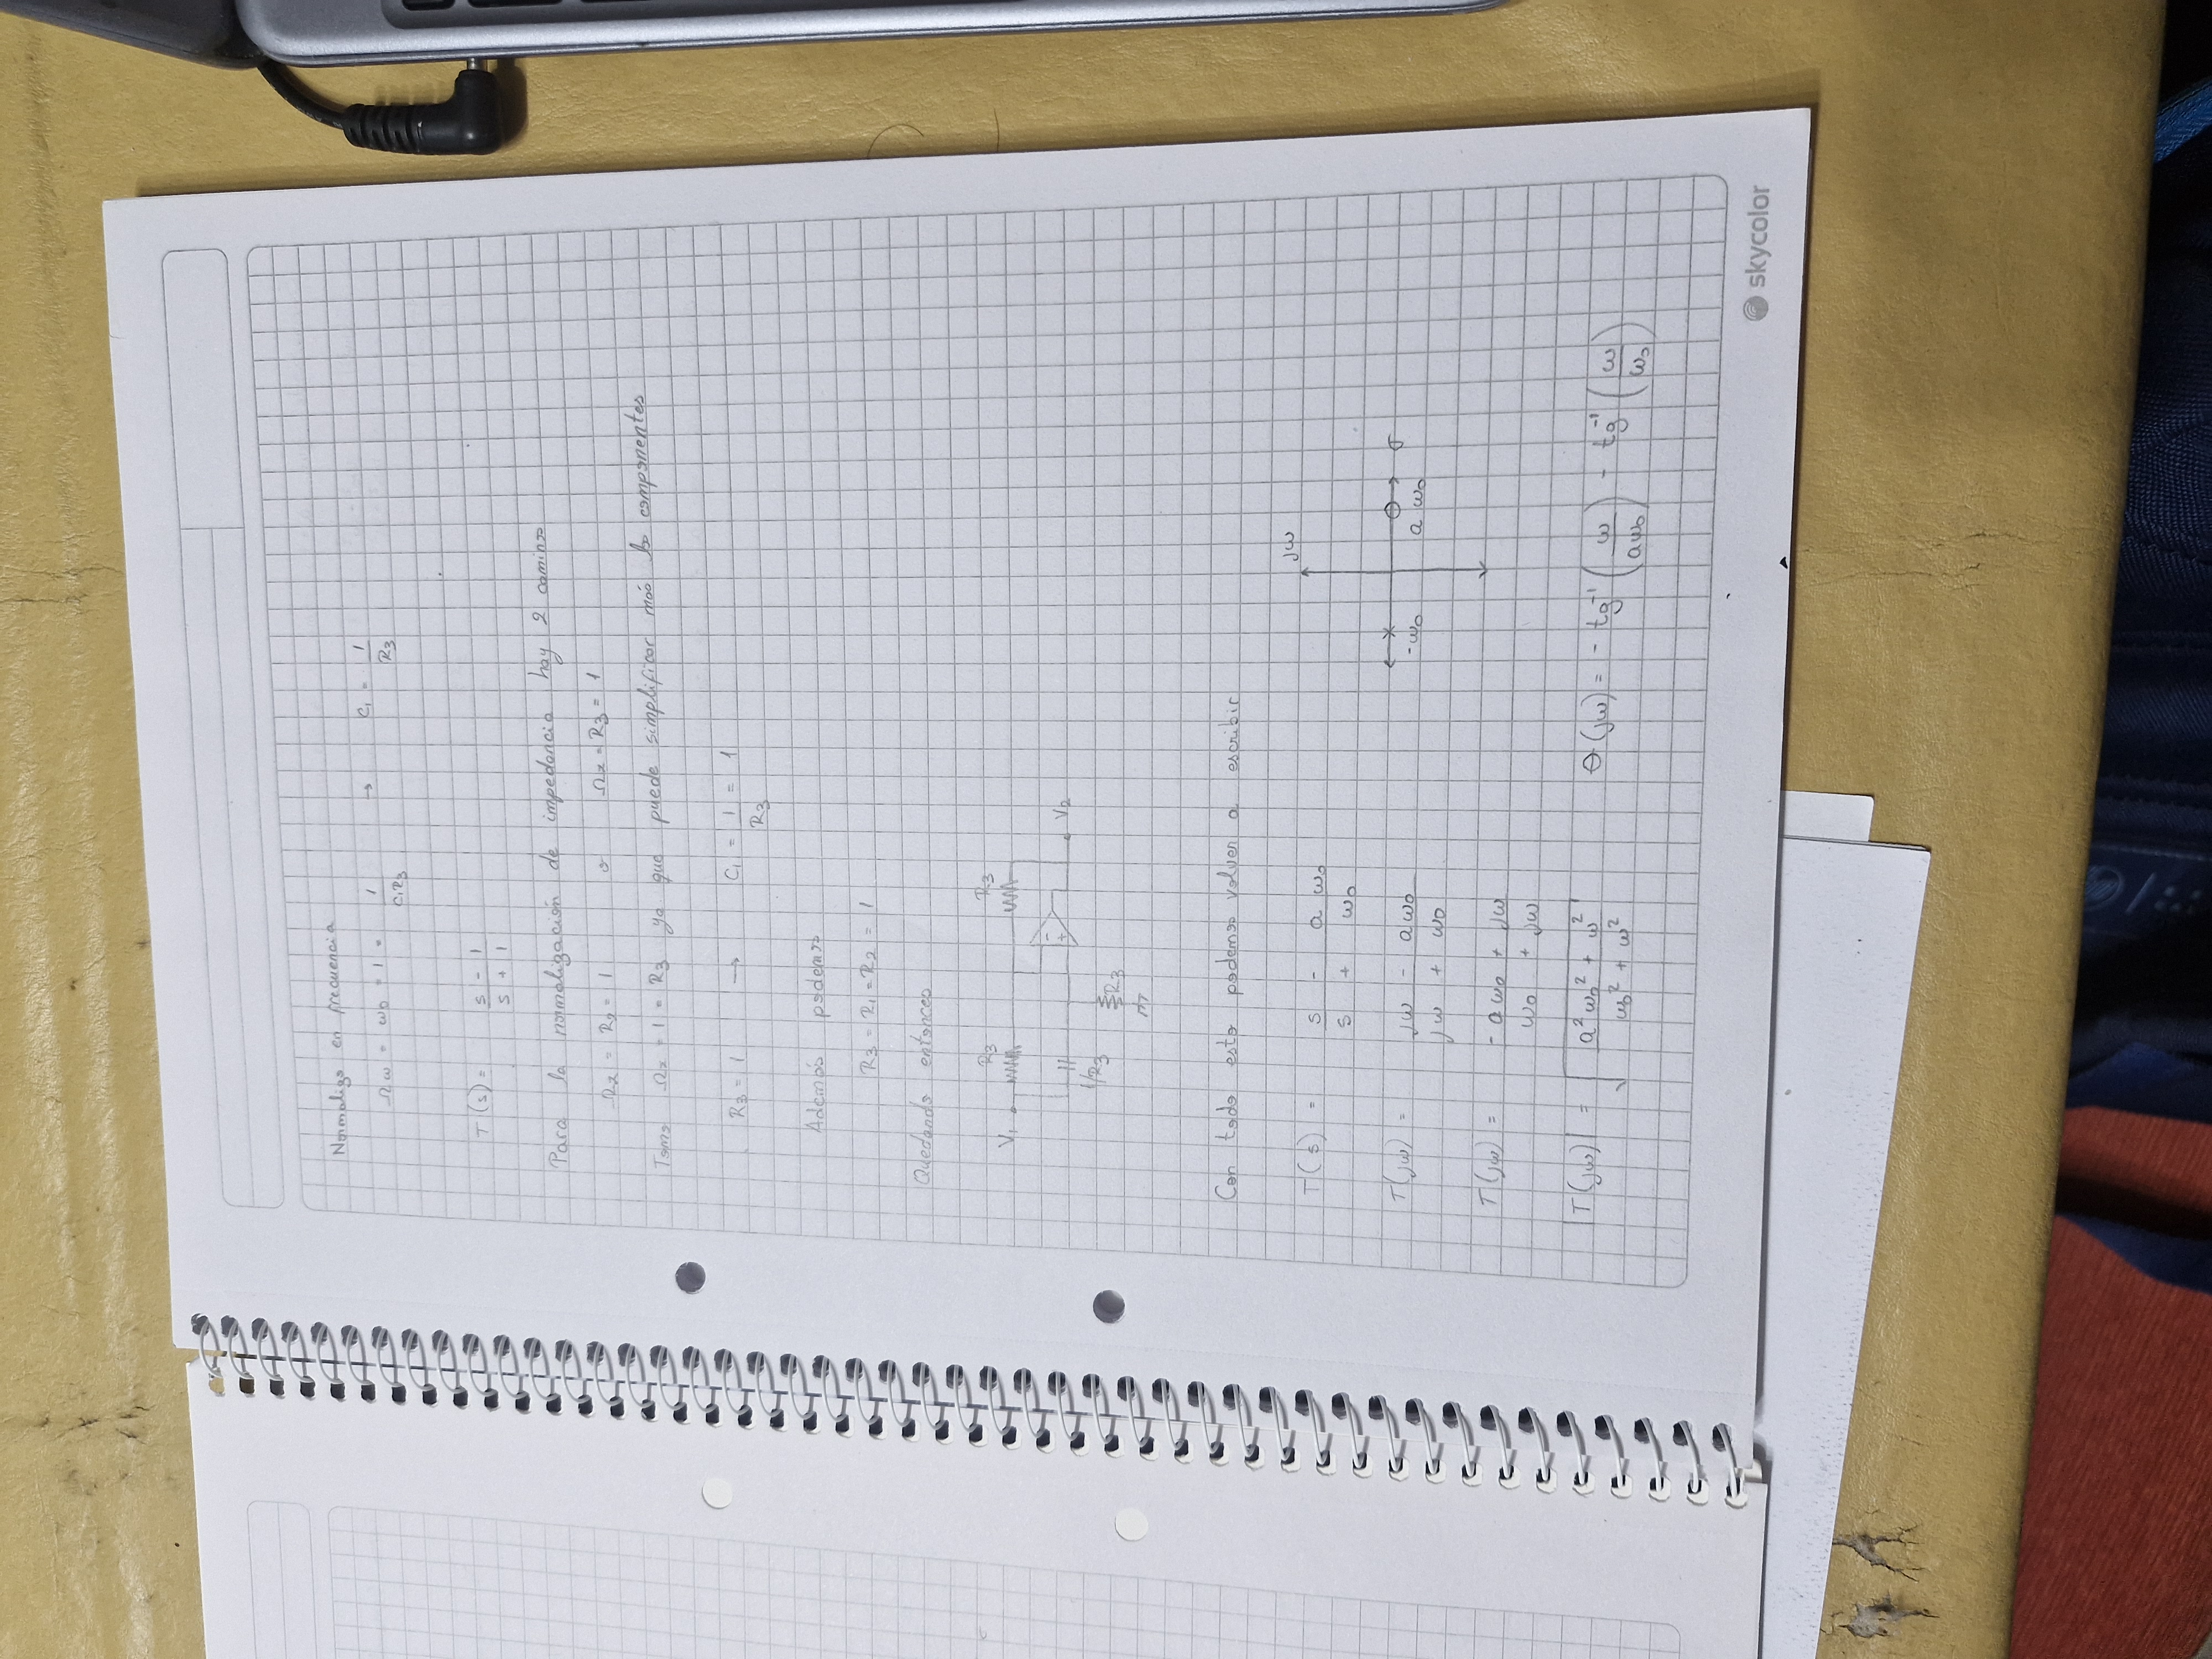 Normalizo en frecuencia
Ωω = ω0 = 1 = 1/(C1R3) → C1 = 1/R3
T(s) = (s - 1)/(s + 1)
Para la normalización de impedancia hay 2 caminos
Ωz = R2 = 1 o Ωz = R3 = 1
Tomo Ωz = 1 = R3 ya que puede simplificar más los componentes
R3 = 1 → C1 = 1/R3 = 1
Además podemos
R3 = R1 = R2 = 1
Quedando entonces
R3 R3
V1
- +
V2
1/R3
R3
Con todo esto podemos volver a escribir
T(s) = (s - a ω0)/(s + ω0)
jω
σ
-ω0 a ω0
T(jω) = (jω - aω0)/(jω + ω0)
T(jω) = (-aω0 + jω)/(ω0 + jω)
|T(jω)| = √((a²ω0² + ω²)/(ω0² + ω²)) θ(jω) = -tg⁻¹(ω/aω0) - tg⁻¹(ω/ω0)
skycolor